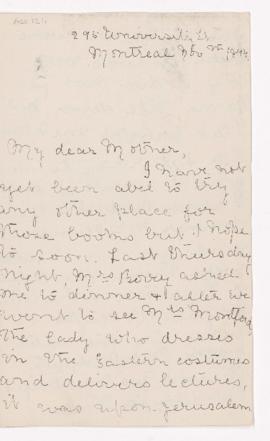 295 University St
Montreal Nov
My dear Mother,
I have not
yet been abel to try
any other place for
those books but I hope
to soon. Last Thursday
night, Mrs Bovey asked
me to dinner & after we
went to see Mrs Montford
the lady who dresses
in the Eastern costumes
and delivers lectures,
it was upon Jerusalem